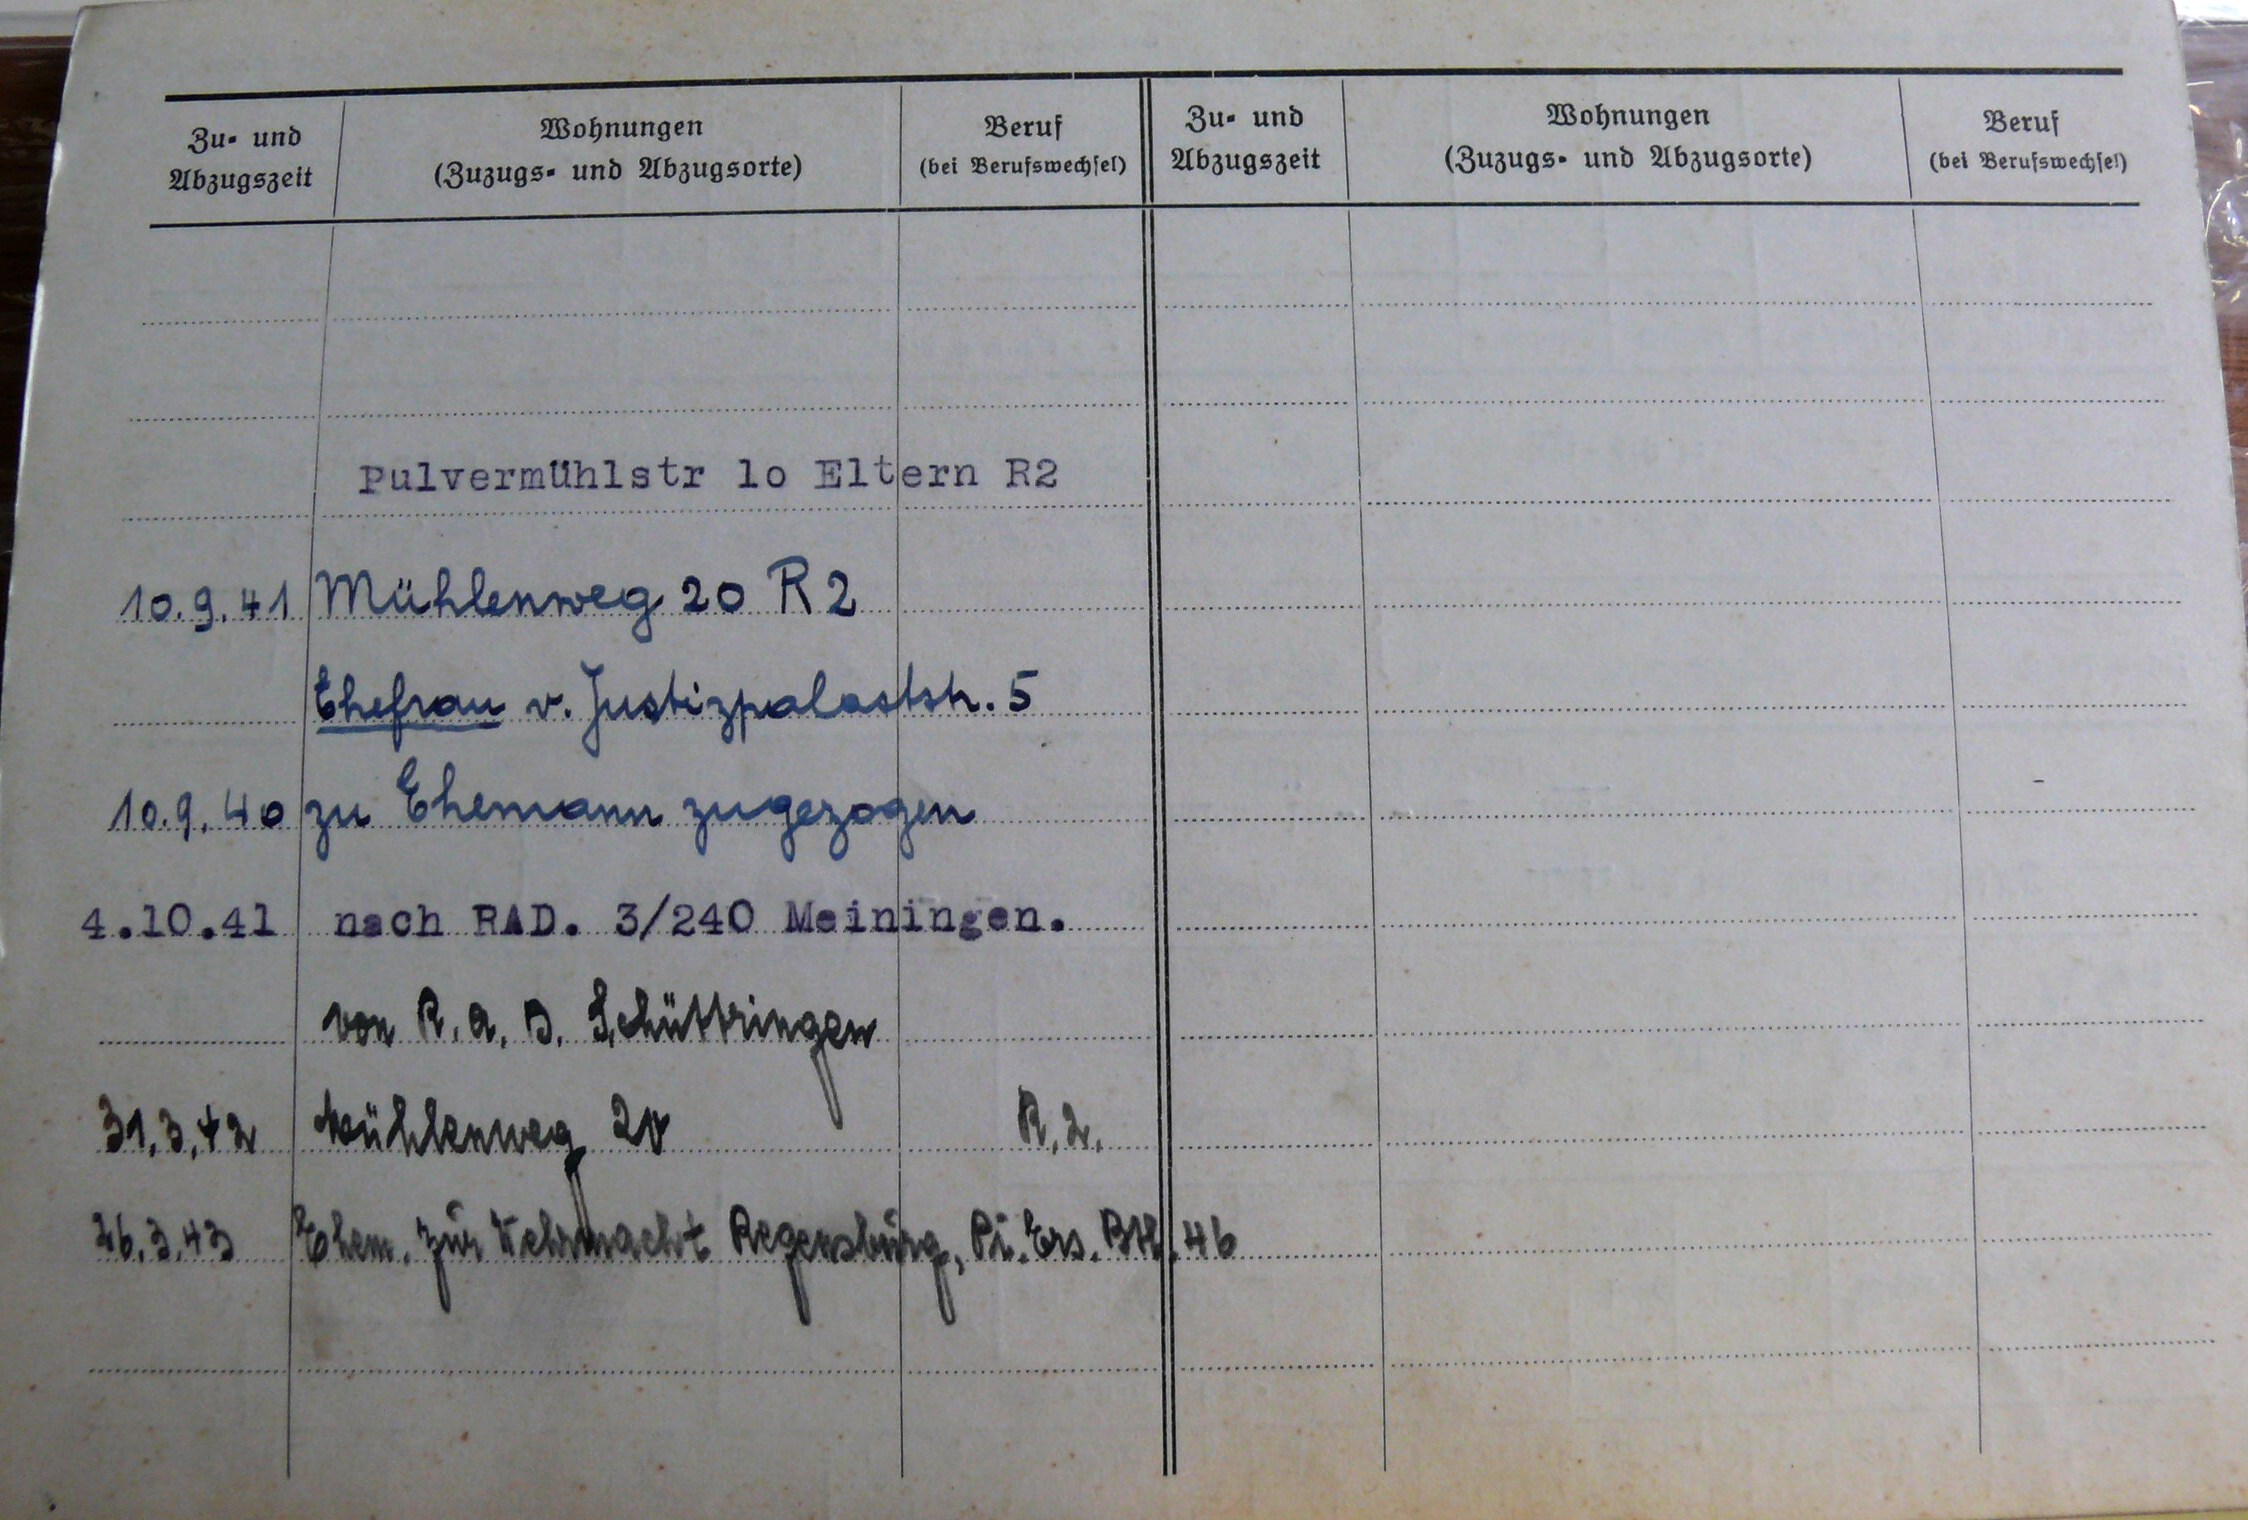 Zu- und Abzugszeit
Wohnungen
(Zuzugs- und Abzugsorte)
Beruf
(bei Berufswechsel)
Zu- und Abzugszeit
Wohnungen
(Zuzugs- und Abzugsorte)
Beruf
(bei Berufswechsel)
Pulvermühlstr lo Eltern R2
10.9.41 Mühlenweg 20 R2
Ehefrau v. Justizpalaststr. 5
10.9.40 zu Ehemann zugezogen
4.10.41 nach RAD. 3/240 Meiningen.
von R.A.D. Schüttringen
31.3.42 Mühlenweg 20 R.2.
26.3.43 Ehem. zur Wehrmacht Regensburg, Pi. Ers. Btl. 46